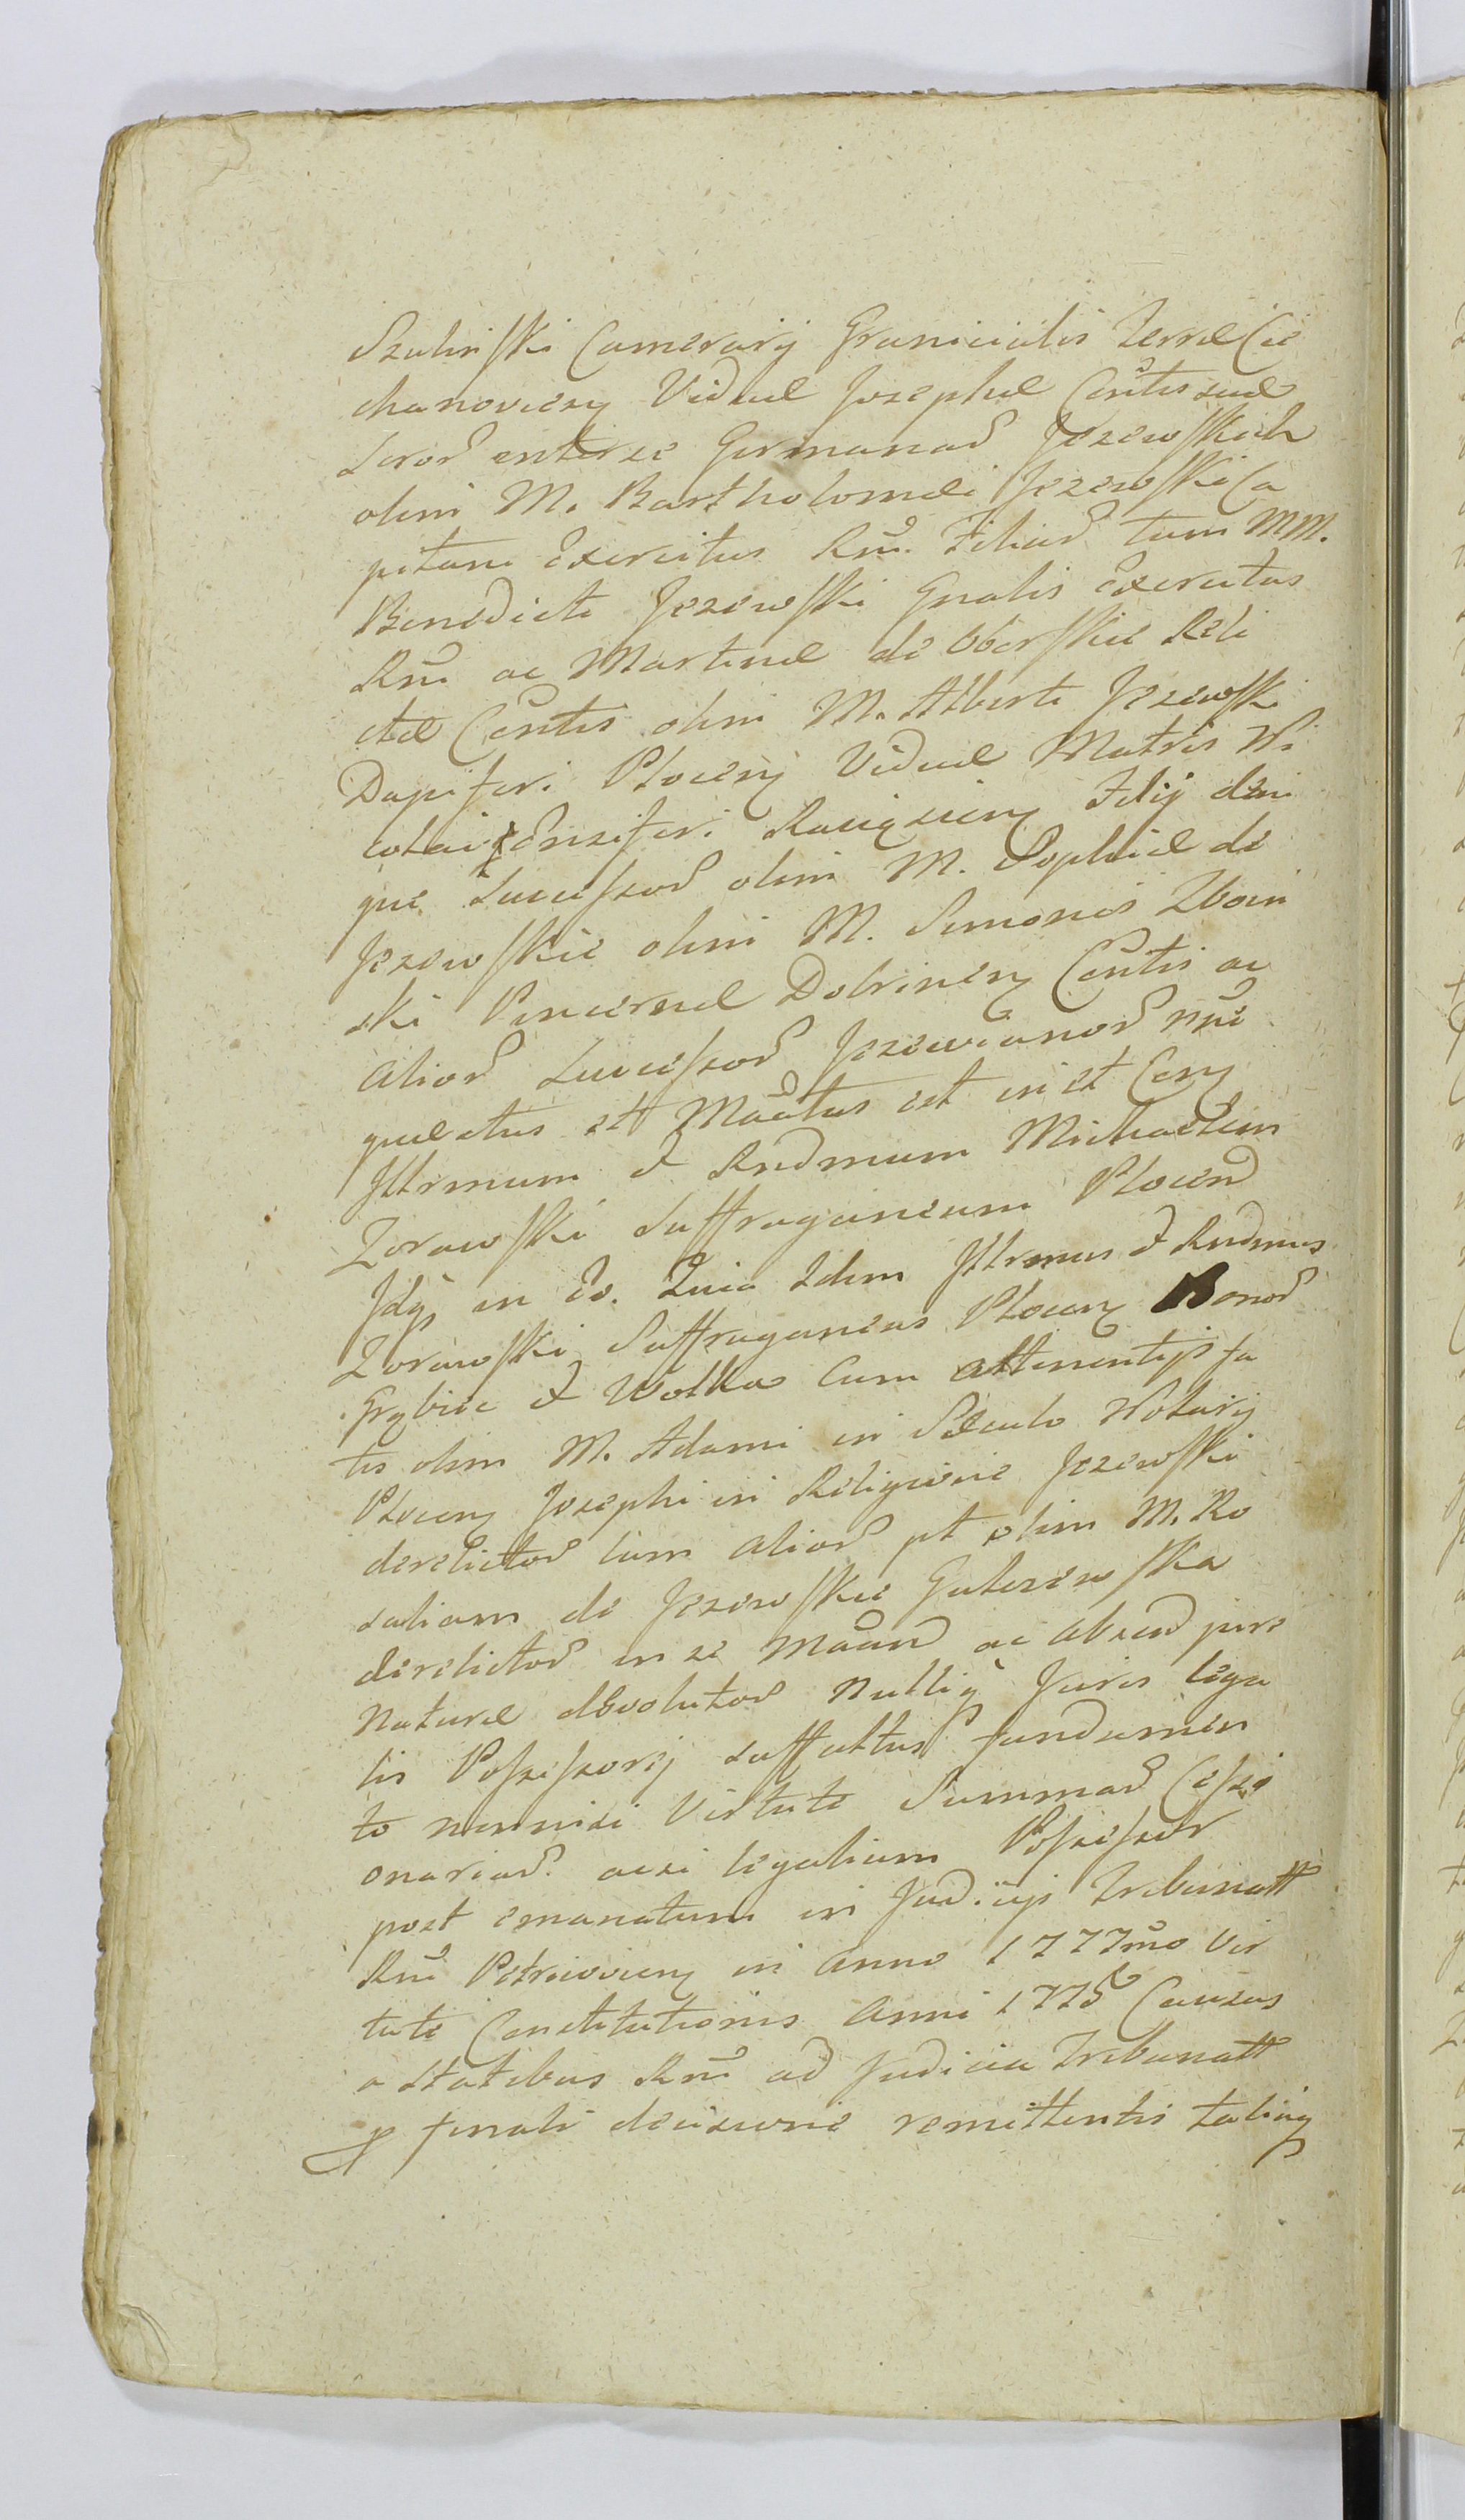 Szulinski Camerarij Granicialis Terræ Cie
chanovien Viduæ Josephæ Contis suæ
Soror inter se German Jezewskich
olim M. Bartholomæi Jezewski Ca
pitanei Exercitus Rni. Filiar tum MM.
Benedicti Jezewski Gnalis Exercitus
Rni ac Martinæ de Oborskie Reli
ctæ Contis olim M. Alberti Jezewski
Dapiferi Plocen Viduæ Matris Ni
colai Ensiferi Raciąien Filij deni
que Successor olim M. Sophiæ de
Jezewskie olim M. Simonis Zboin
ski Pincernæ Dobrinen Contis ac
Alior Successor Jezewianor nne
quæstus est Maatus est in et Con
Illrmum & Rndmum Michaelem
Zorawski Suffraganeum Plocen
Idq in eo. Quia Idem Illrmus & Rndmus
Zorawski Suffraganeus Plocen Bonor
Grzbiec & Wolka Cum attinentijs fa
tis olim M. Adami in Sæculo Notarij
Plocen Josephi in Religione Jezewski
derelictor tum alior pt olim M. Ro
saliam de Jezewskie Guterzewska
derelictor in se Maan ac absen jure
Naturæ devolutor Nulliq Juris lega
lis Possessorij suffultus fundamen
to nonnisi Virtute Summar Cessi
onariar acsi legalium Possessor
post emanatum in Judicijs Tribunatt
Rni Petricovien in Anno 1777mo Vir
tute Constitutionis Anni 1775 Causas
a Statibus Rni ad Judicia Tribunatt
p finali decisione remittentis taling